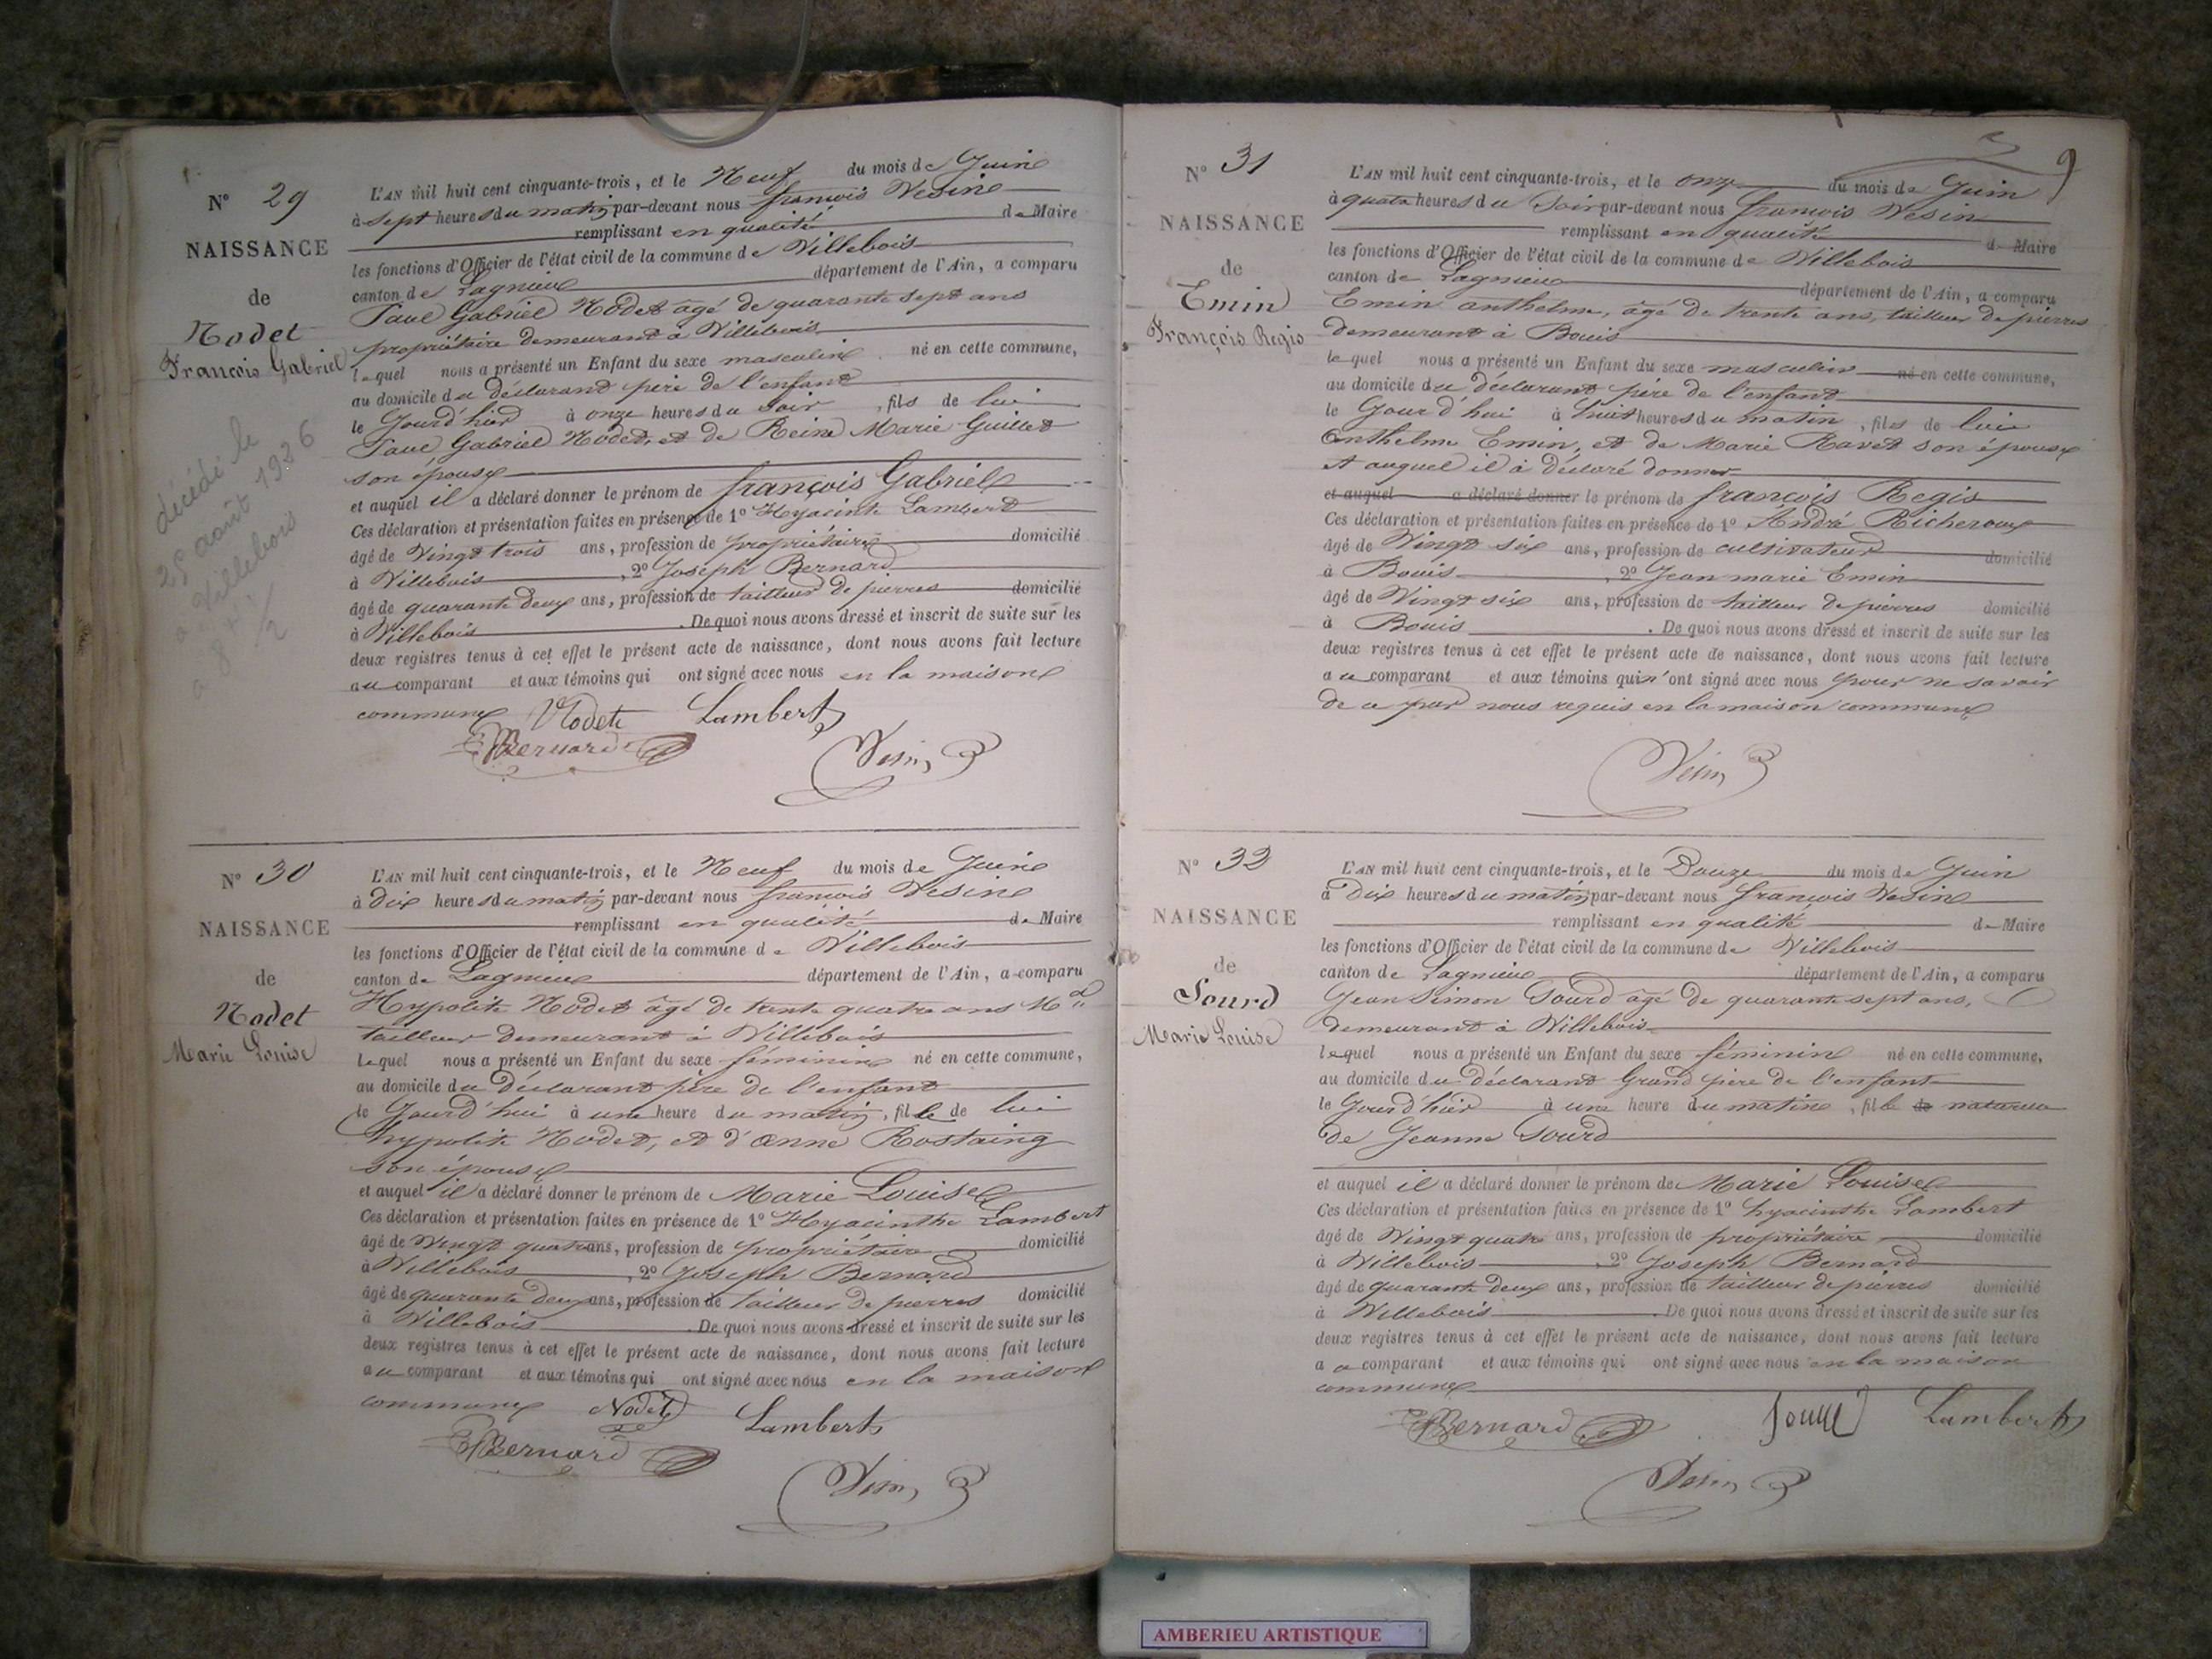 N° 29
NAISSANCE
de
Nodet
François Gabriel
décédé le
25 août 1936
a Villebois
L'AN mil huit cent cinquante-trois, et le Neuf du mois de Juin
à Sept heures du matin par-devant nous françois Vesin
remplissant en qualité de Maire
les fonctions d'Officier de l'état civil de la commune de Villebois
canton de Lagnieu département de l'Ain, a comparu
Paul Gabriel Nodet âgé de quarante sept ans
propriétaire demeurant à Villebois
lequel nous a présenté un Enfant du sexe masculin né en cette commune,
au domicile du déclarant père de l'enfant
le Jourd'hier à onze heures du soir, fils de lui
Paul Gabriel Nodet, et de Reine Marie Guillet
son épouse
et auquel il a déclaré donner le prénom de françois Gabriel
Ces déclaration et présentation faites en présence de 1° Hyacinte Lambert
âgé de Vingt trois ans, profession de propriétaire domicilié
à Villebois, 2° Joseph Bernard
âgé de quarante deux ans, profession de tailleur de pierres domicilié
à Villebois. De quoi nous avons dressé et inscrit de suite sur les
deux registres tenus à cet effet le présent acte de naissance, dont nous avons fait lecture
au comparant et aux témoins qui ont signé avec nous en la maison
commune Nodet Lambert
Bernard Vesin
N° 30
NAISSANCE
de
Nodet
Marie Louise
L'AN mil huit cent cinquante-trois, et le Neuf du mois de Juin
à Dix heures du matin par-devant nous françois Vesin
remplissant en qualité de Maire
les fonctions d'Officier de l'état civil de la commune de Villebois
canton de Lagnieu département de l'Ain, a comparu
Hypolite Nodet âgé de trente quatre ans Md
tailleur demeurant à Villebois
Lequel nous a présenté un Enfant du sexe féminin né en cette commune,
au domicile du déclarant père de l'enfant
le Jourd'hui à une heure du matin, fille de lui
hypolite Nodet, et d'anne Rostaing
son épouse
et auquel il a déclaré donner le prénom de Marie Louise
Ces déclaration et présentation faites en présence de 1° Hyacinthe Lambert
âgé de Vingt quatre ans, profession de propriétaire domicilié
à Villebois, 2° Joseph Bernard
âgé de quarante deux ans, profession de tailleur de pierres domicilié
à Villebois. De quoi nous avons dressé et inscrit de suite sur les
deux registres tenus à cet effet le présent acte de naissance, dont nous avons fait lecture
au comparant et aux témoins qui ont signé avec nous en la maison
commune Nodet Lambert
Bernard Vesin
9
N° 31
NAISSANCE
de
Emin
François Regis
L'AN mil huit cent cinquante-trois, et le onze du mois de Juin
à quatre heures du Soir par-devant nous françois Vesin
remplissant en qualité de Maire
les fonctions d'Officier de l'état civil de la commune de Villebois
canton de Lagnieu département de l'Ain, a comparu
Emin anthelme, âgé de trente ans, tailleur de pierres
demeurant à Bouis
lequel nous a présenté un Enfant du sexe masculin né en cette commune,
au domicile du déclarant père de l'enfant
le Jourd'hui à huit heures du matin, fils de lui
Anthelme Emin, et de Marie Ravet son épouse
et auquel il à déclaré donner
et auquel a déclaré donner le prénom de françois Regis
Ces déclaration et présentation faites en présence de 1° André Richeroux
âgé de Vingt six ans, profession de cultivateur domicilié
à Bouis, 2° Jean marie Emin
âgé de Vingt six ans, profession de tailleur de pierres domicilié
à Bouis. De quoi nous avons dressé et inscrit de suite sur les
deux registres tenus à cet effet le présent acte de naissance, dont nous avons fait lecture
au comparant et aux témoins qui n'ont signé avec nous pour ne savoir
de ce par nous requis en la maison commune
Vesin
N° 32
NAISSANCE
de
Sourd
Marie Louise
L'AN mil huit cent cinquante-trois, et le Douze du mois de Juin
à Dix heures du matin par-devant nous françois Vesin
remplissant en qualité de Maire
les fonctions d'Officier de l'état civil de la commune de Villebois
canton de Lagnieu département de l'Ain, a comparu
Jean Simon Sourd âgé de quarante sept ans,
demeurant à Villebois
lequel nous a présenté un Enfant du sexe féminin né en cette commune,
au domicile du déclarant Grand père de l'enfant
le Jourd'hier à une heure du matin, fille de naturelle
de Jeanne Sourd
et auquel il a déclaré donner le prénom de Marie Louise
Ces déclaration et présentation faites en présence de 1° hyacinthe Lambert
âgé de Vingt quatre ans, profession de propriétaire domicilié
à Villebois, 2° Joseph Bernard
âgé de quarante deux ans, profession de tailleur de pierres domicilié
à Villebois. De quoi nous avons dressé et inscrit de suite sur les
deux registres tenus à cet effet le présent acte de naissance, dont nous avons fait lecture
au comparant et aux témoins qui ont signé avec nous en la maison
commune
Bernard Sourd Lambert
Vesin
AMBERIEU ARTISTIQUE